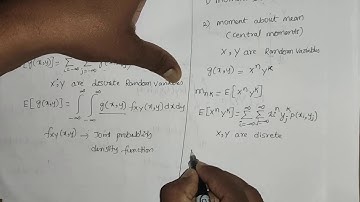 [g(x,y)] = Σ Σ g(x
i=-∞ j=-∞
X,Y are discrete Random variables
E[g(x,y)] = ∫∫ g(x,y) fxy(x,y) dxdy
-∞ -∞
fxy(x,y) → Joint probability
density function
2) moment about mean
(central moments)
X, Y are Random Variables
g(x,y) = xⁿ yᴷ
mₙₖ = E[xⁿ yᴷ]
E[xⁿ yᴷ] = Σ Σ xᵢⁿ yⱼᴷ p(xᵢ, yⱼ)
i=-∞ j=-∞
X,Y are discrete